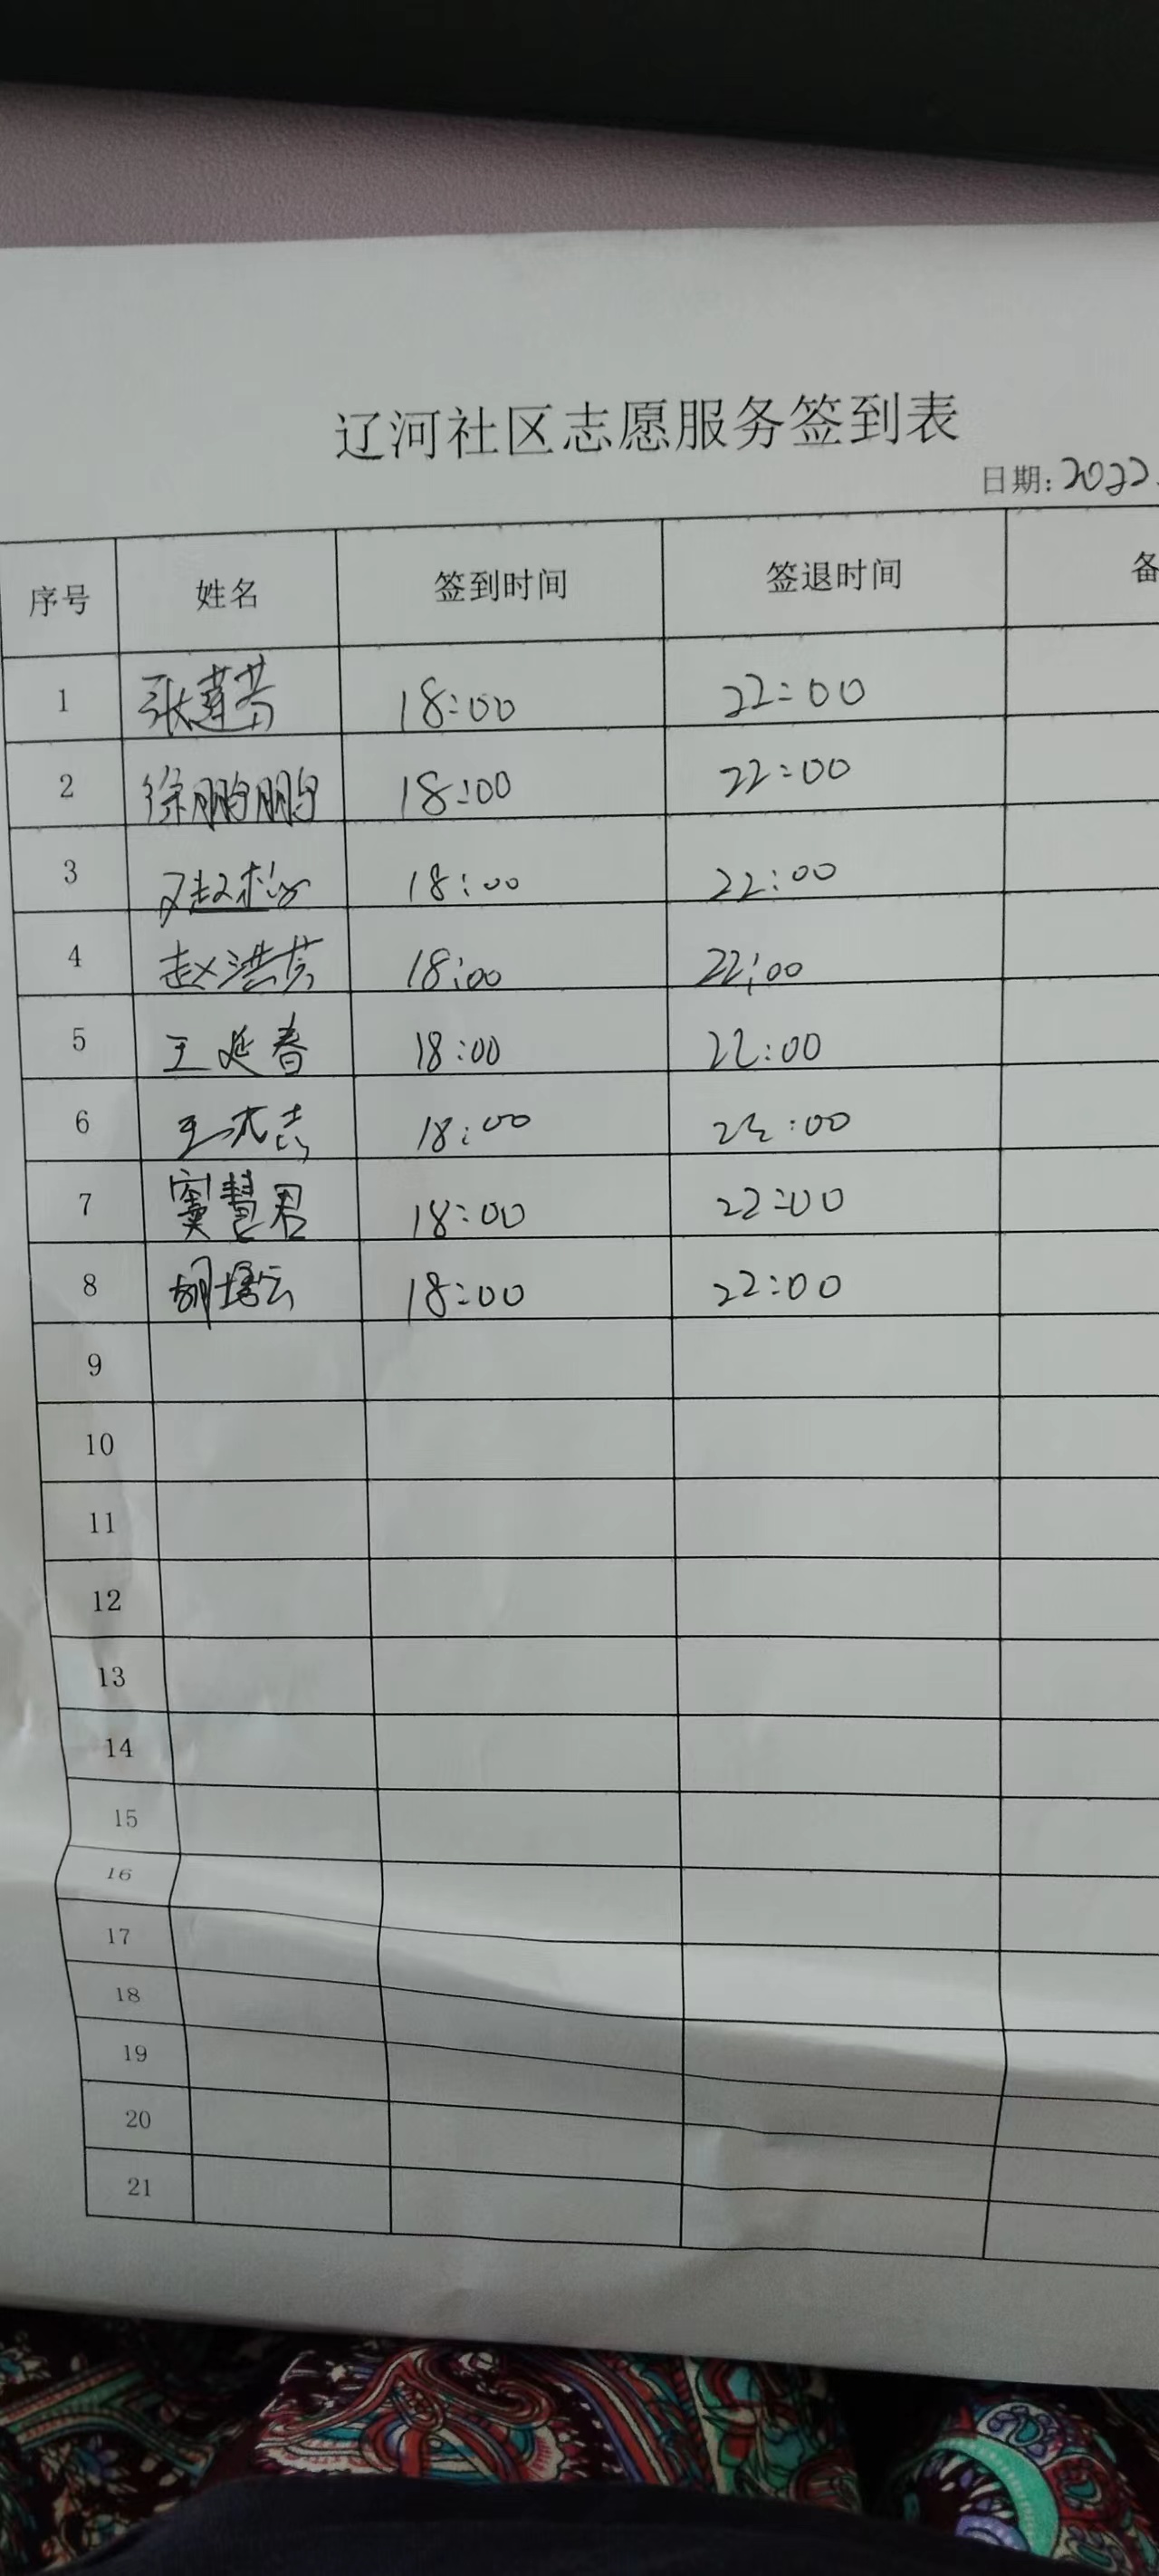 辽河社区志愿服务签到表
日期:2022.
序号 姓名 签到时间 签退时间 备
1 张莲芳 18:00 22:00
2 徐鹏鹏 18:00 22:00
3 18:00 22:00
4 赵洪芳 18:00 22:00
5 王延春 18:00 22:00
6 18:00 22:00
7 窦慧君 18:00 22:00
8 18:00 22:00
9
10
11
12
13
14
15
16
17
18
19
20
21